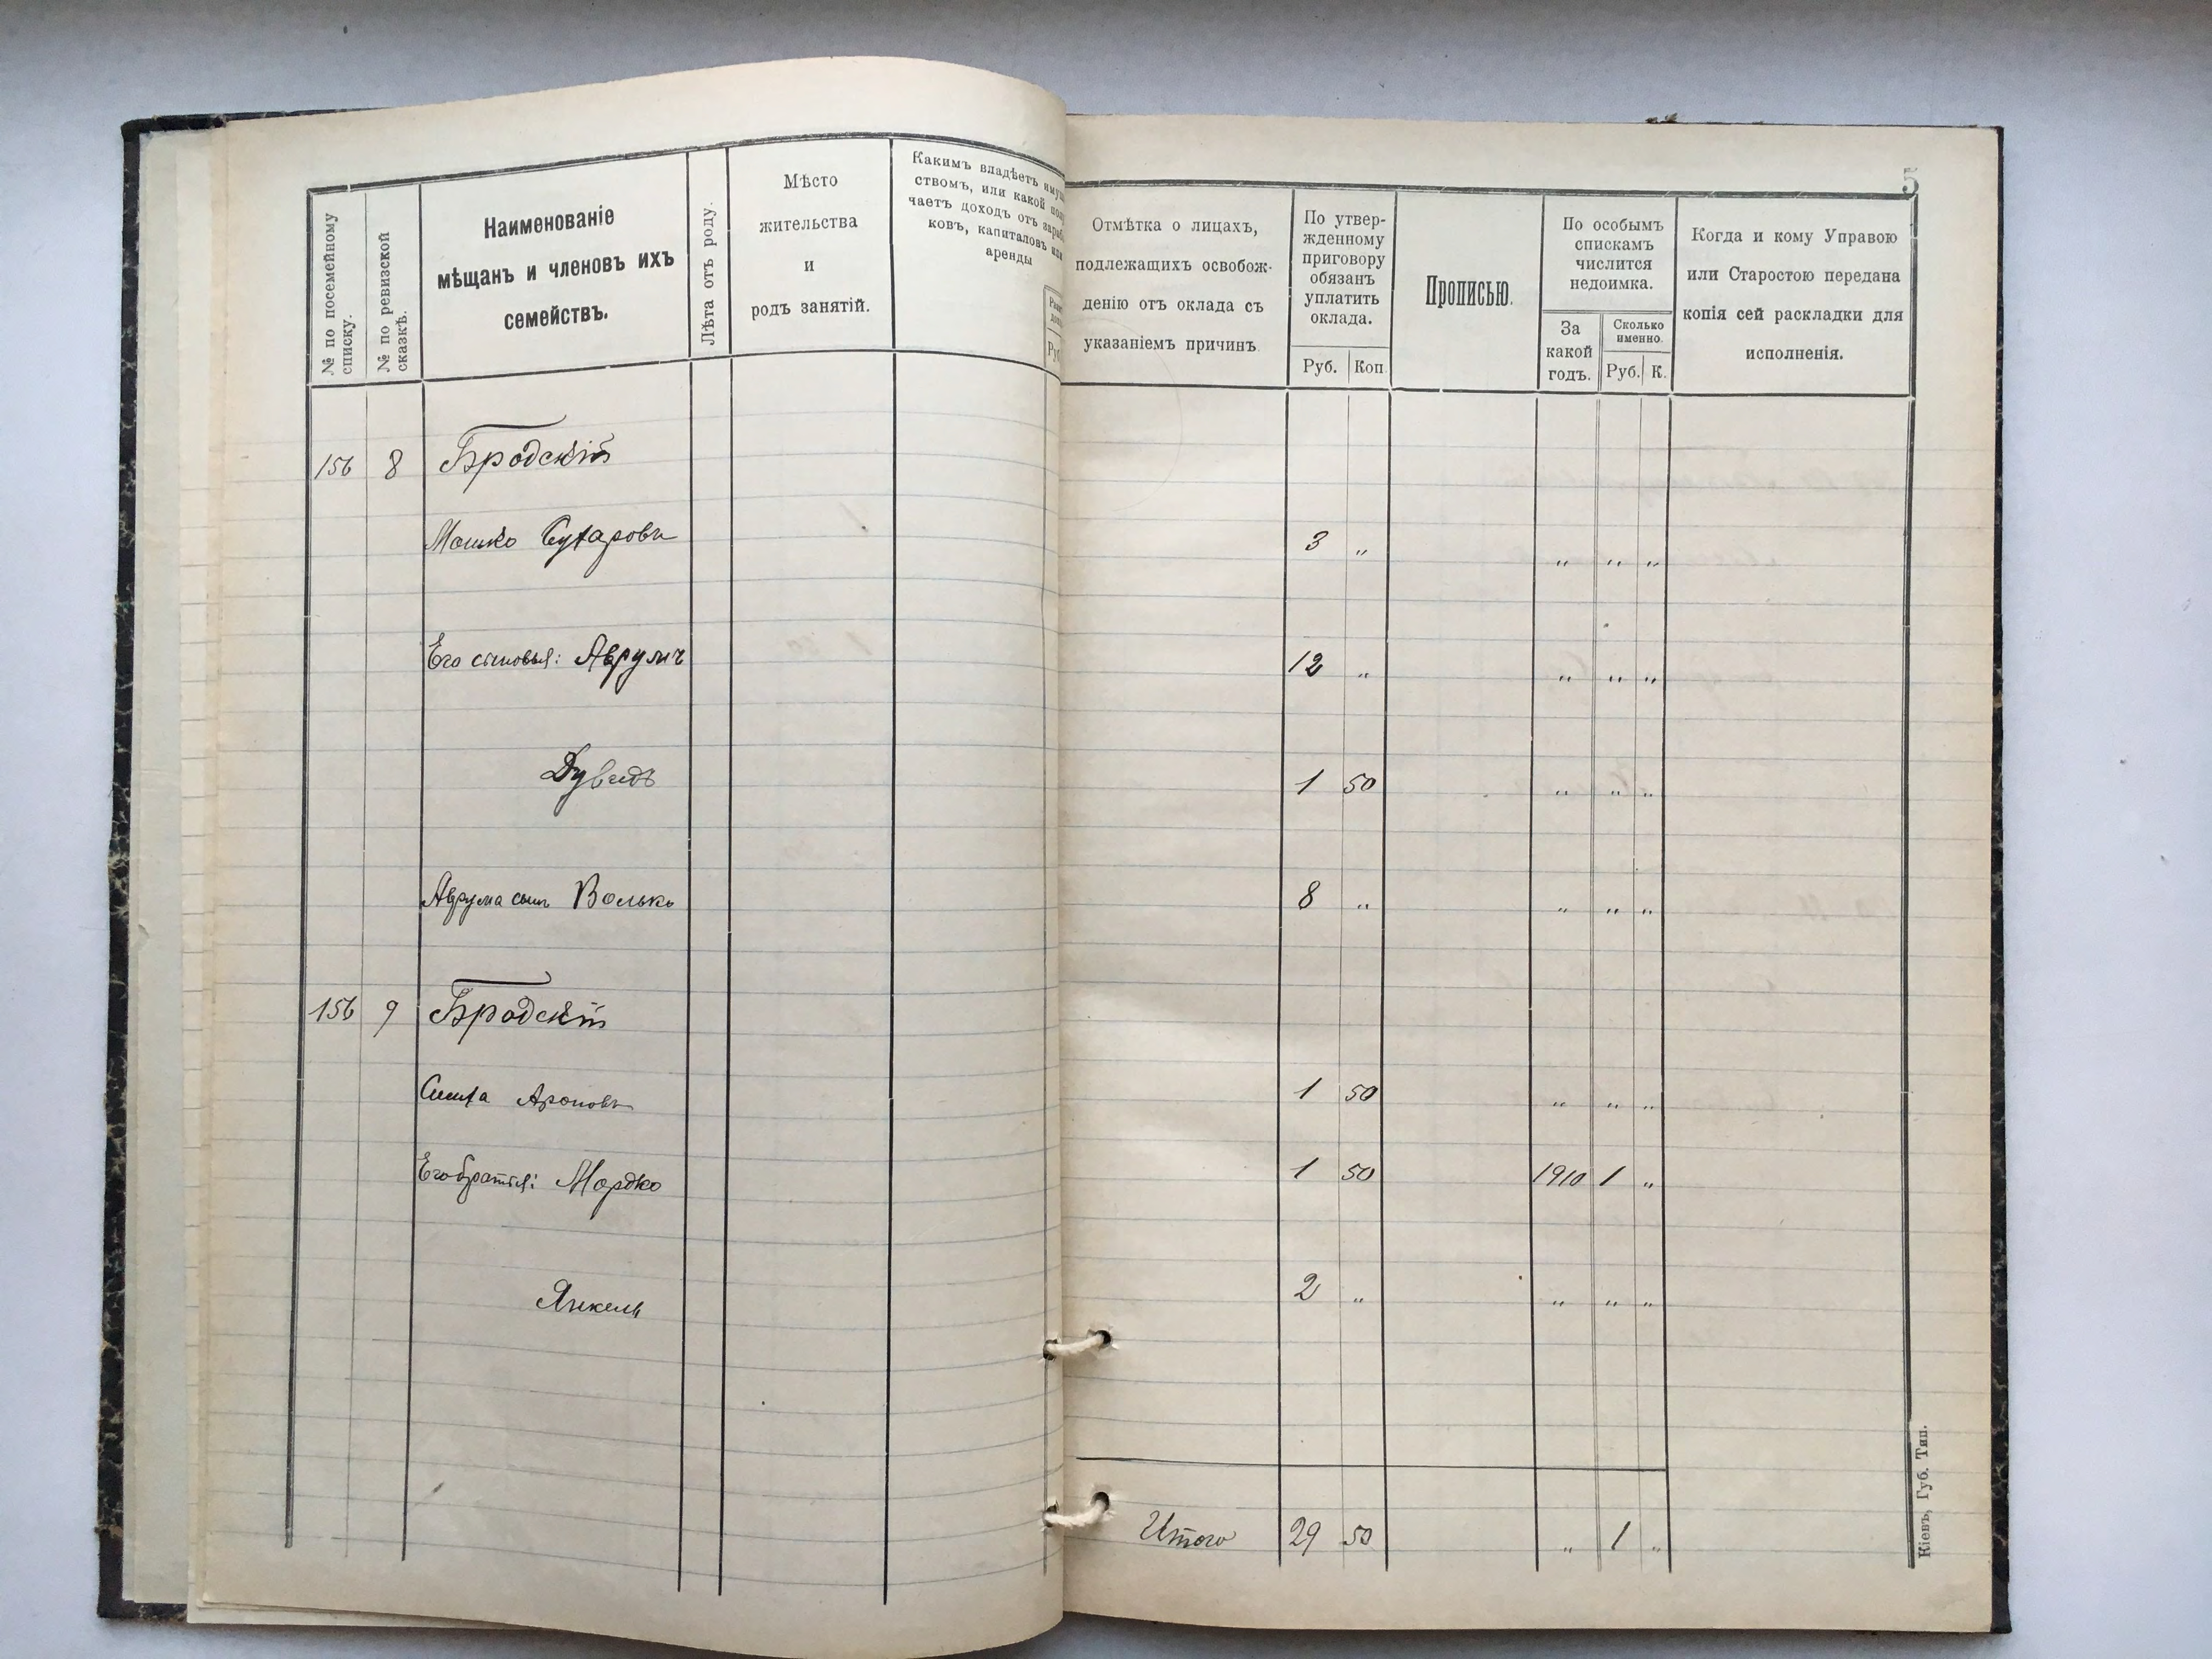 5
№ по посемейному списку.
№ по ревизской сказкѣ.
Наименованіе
мѣщанъ и членовъ ихъ
семействъ.
Лѣта отъ роду.
Мѣсто
жительства
и
родъ занятій.
Какимъ владѣетъ
ствомъ, или какой
чаетъ доходъ отъ
ковъ, капиталовъ или
аренды
Отмѣтка о лицахъ,
подлежащихъ освобож-
денію отъ оклада съ
указаніемъ причинъ
По утвер-
жденному
приговору
обязанъ
уплатить
оклада.
Руб. Коп
Прописью.
По особымъ
спискамъ
числится
недоимка.
За
какой
годъ.
Сколько
именно.
Руб. К.
Когда и кому Управою
или Старостою передана
копія сей раскладки для
исполненія.
156 8 Бродскій
Мошко Сухаровъ 3 „ „ „ „
Его сыновья: Аврумъ 12 „ „ „ „
Дувидъ 1 50 „ „ „
Аврума сынъ Волько 8 „ „ „ „
156 9 Бродскій
Симха Ароновъ 1 50 „ „ „
Его братья: Мордко 1 50 1910 1 „
Янкель 2 „ „ „ „
Итого 29 50 „ 1 „
Кіевъ, Губ. Тип.